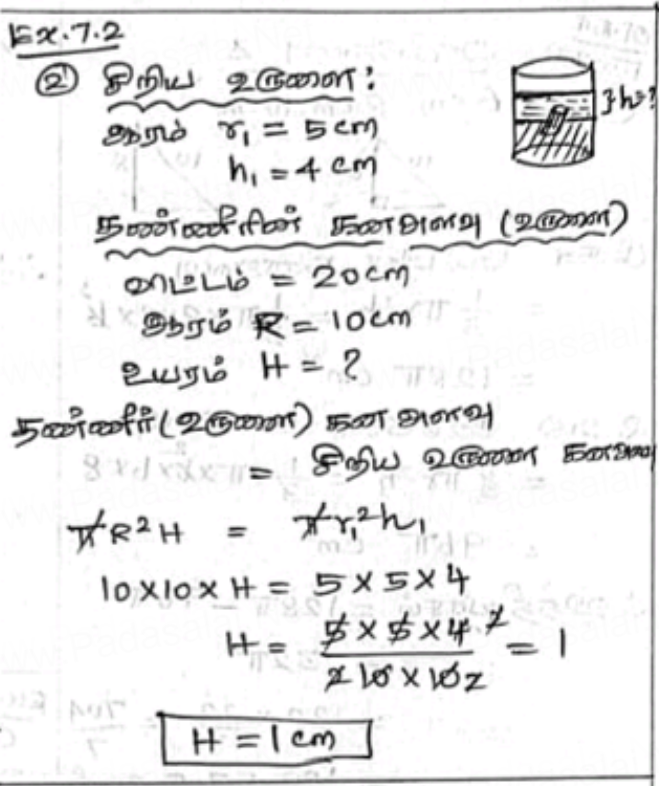 Ex.7.2
② சிறிய உருளை :
ஆரம் r₁ = 5 cm
h₁ = 4 cm
}h=?
தண்ணீரின் கனஅளவு (உருளை)
விட்டம் = 20cm
ஆரம் R = 10cm
உயரம் H = ?
தண்ணீர் (உருளை) கன அளவு
= சிறிய உருளை கனஅளவு
πR²H = πr₁²h₁
10×10×H = 5×5×4
H = 5×5×4 2 / 2 10 × 10 2 = 1
H = 1 cm